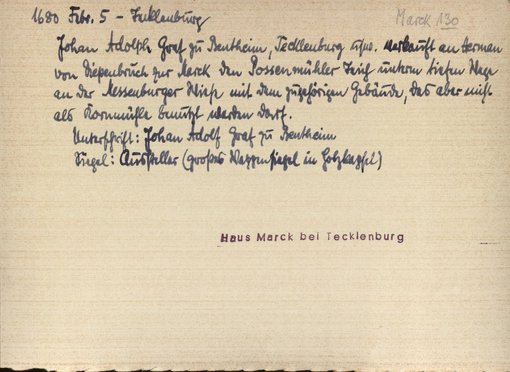 1680 Febr. 5 - Tecklenburg
Marck 130
Johan Adolph Graf zu Bentheim, Tecklenburg usw. verkauft an Herman
von Diepenbruch zur Marck den Possenmühler Teich unterm tiefen Wege
an der Messenburger Wiese mit dem zugehörigen Gebäude, das aber nicht
als Kornmühle benutzt werden darf.
Unterschrift: Johan Adolf Graf zu Bentheim
Siegel: Aussteller (großes Wappensiegel in Holzkapsel)
Haus Marck bei Tecklenburg